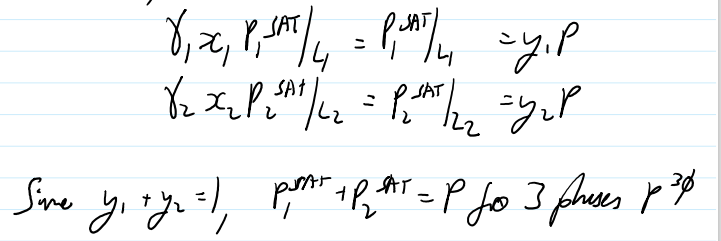 γ₁x₁P₁ˢᴬᵀ/L₁ = P₁ˢᴬᵀ/L₁ = y₁P
γ₂x₂P₂ˢᴬᵗ/L₂ = P₂ˢᴬᵀ/L₂ = y₂P
Sine y₁ + y₂ = 1, P₁ˢᴬᵀ + P₂ˢᴬᵀ = P fo 3 phases P³ᶲ